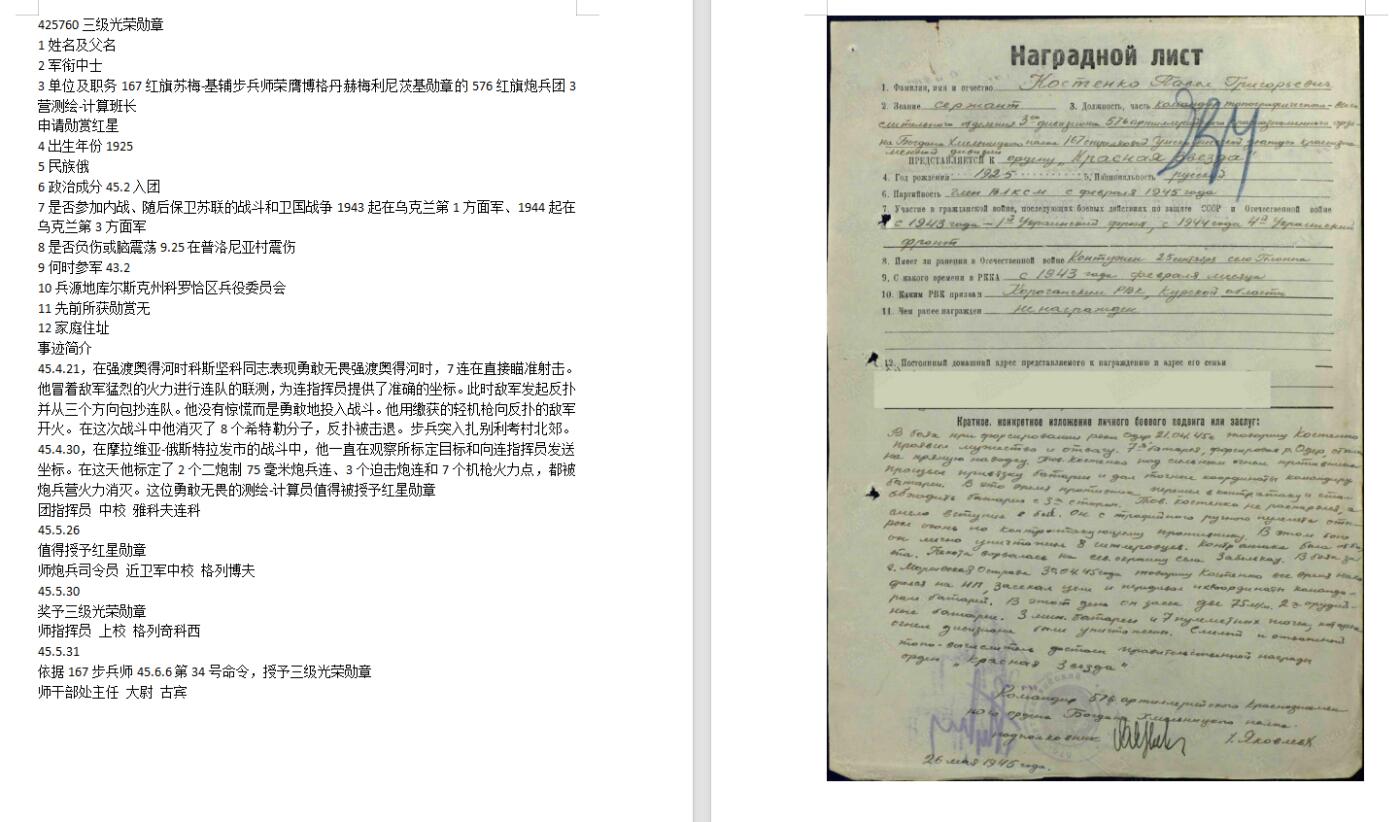 425760 三级光荣勋章
1 姓名及父名
2 军衔中士
3 单位及职务 167 红旗苏梅-基辅步兵师荣膺博格丹赫梅利尼茨基勋章的 576 红旗炮兵团 3
营测绘-计算班长
申请勋赏红星
4 出生年份 1925
5 民族俄
6 政治成分 45.2 入团
7 是否参加内战、随后保卫苏联的战斗和卫国战争 1943 起在乌克兰第 1 方面军、1944 起在
乌克兰第 3 方面军
8 是否负伤或脑震荡 9.25 在普洛尼亚村震伤
9 何时参军 43.2
10 兵源地库尔斯克州科罗恰区兵役委员会
11 先前所获勋赏无
12 家庭住址
事迹简介
45.4.21，在强渡奥得河时科斯坚科同志表现勇敢无畏强渡奥得河时，7 连在直接瞄准射击。
他冒着敌军猛烈的火力进行连队的联测，为连指挥员提供了准确的坐标。此时敌军发起反扑
并从三个方向包抄连队。他没有惊慌而是勇敢地投入战斗。他用缴获的轻机枪向反扑的敌军
开火。在这次战斗中他消灭了 8 个希特勒分子，反扑被击退。步兵突入扎别利考村北郊。
45.4.30，在摩拉维亚-俄斯特拉发市的战斗中，他一直在观察所标定目标和向连指挥员发送
坐标。在这天他标定了 2 个二炮制 75 毫米炮兵连、3 个迫击炮连和 7 个机枪火力点，都被
炮兵营火力消灭。这位勇敢无畏的测绘-计算员值得被授予红星勋章
团指挥员 中校 雅科夫连科
45.5.26
值得授予红星勋章
师炮兵司令员 近卫军中校 格列博夫
45.5.30
奖予三级光荣勋章
师指挥员 上校 格列奇科西
45.5.31
依据 167 步兵师 45.6.6 第 34 号命令，授予三级光荣勋章
师干部处主任 大尉 古宾
Наградной лист
1. Фамилия, имя и отчество Костенко Павел Григорьевич
2. Звание сержант 3. Должность, часть командир топографическо-вычи-
слительного отделения 3го дивизиона 576 артиллерийского краснознаменного орде-
на Богдана Хмельницкого полка 167 стрелковой
дивизии
ПРЕДСТАВЛЯЕТСЯ К ордену „Красная Звезда"
4. Год рождения 1925 5. Национальность русский
6. Партийность член ВЛКСМ с февраля 1945 года
7. Участие в гражданской войне, последующих боевых действиях по защите СССР и Отечественной войне
с 1943 года – 1й Украинский фронт, с 1944 года 4й Украинский
фронт
8. Имеет ли ранения в Отечественной войне Контужен 25 сентября село
9. С какого времени в РККА с 1943 года февраля месяца
10. Каким РВК призван Корочанским РВК, Курской области
11. Чем ранее награжден не награжден
12. Постоянный домашний адрес представляемого к награждению и адрес его семьи
Краткое, конкретное изложение личного боевого подвига или заслуг:
В боях при форсировании реки Одер 21.04.45г. товарищ Костенко
проявил мужество и отвагу. 7я батарея, форсировав р. Одер, стала
на прямую наводку. Тов. Костенко под сильным огнем противника
произвел привязку батареи и дал точные координаты командиру
батареи. В это время противник перешел в контратаку и стал
обходить батарею с 3х сторон. Тов. Костенко не растерялся, а
смело вступил в бой. Он с трофейного ручного пулемета отк-
рыл огонь по контратакующему противнику. В этом бою
он лично уничтожил 8 гитлеровцев. Контратака была отби-
та. Пехота ворвалась на сев. окраину села Забелкау. В боях за
г. Моравская Острава 30.04.45 года товарищ Костенко все время нахо-
дился на НП, засекал цели и передавал их координаты команди-
рам батарей. В этот день он засек две 75 м/м. 2х орудий-
ные батареи. 3 мин. батареи и 7 пулеметных точек, которые
огнем дивизиона были уничтожены. Смелый и отважный
топо-вычислитель достоин правительственной награды
орден „Красная Звезда"
Командир 576 артиллерийского Краснознамен-
ного ордена Богдана Хмельницкого полка
подполковник /. Яковлев
26 мая 1945 года.